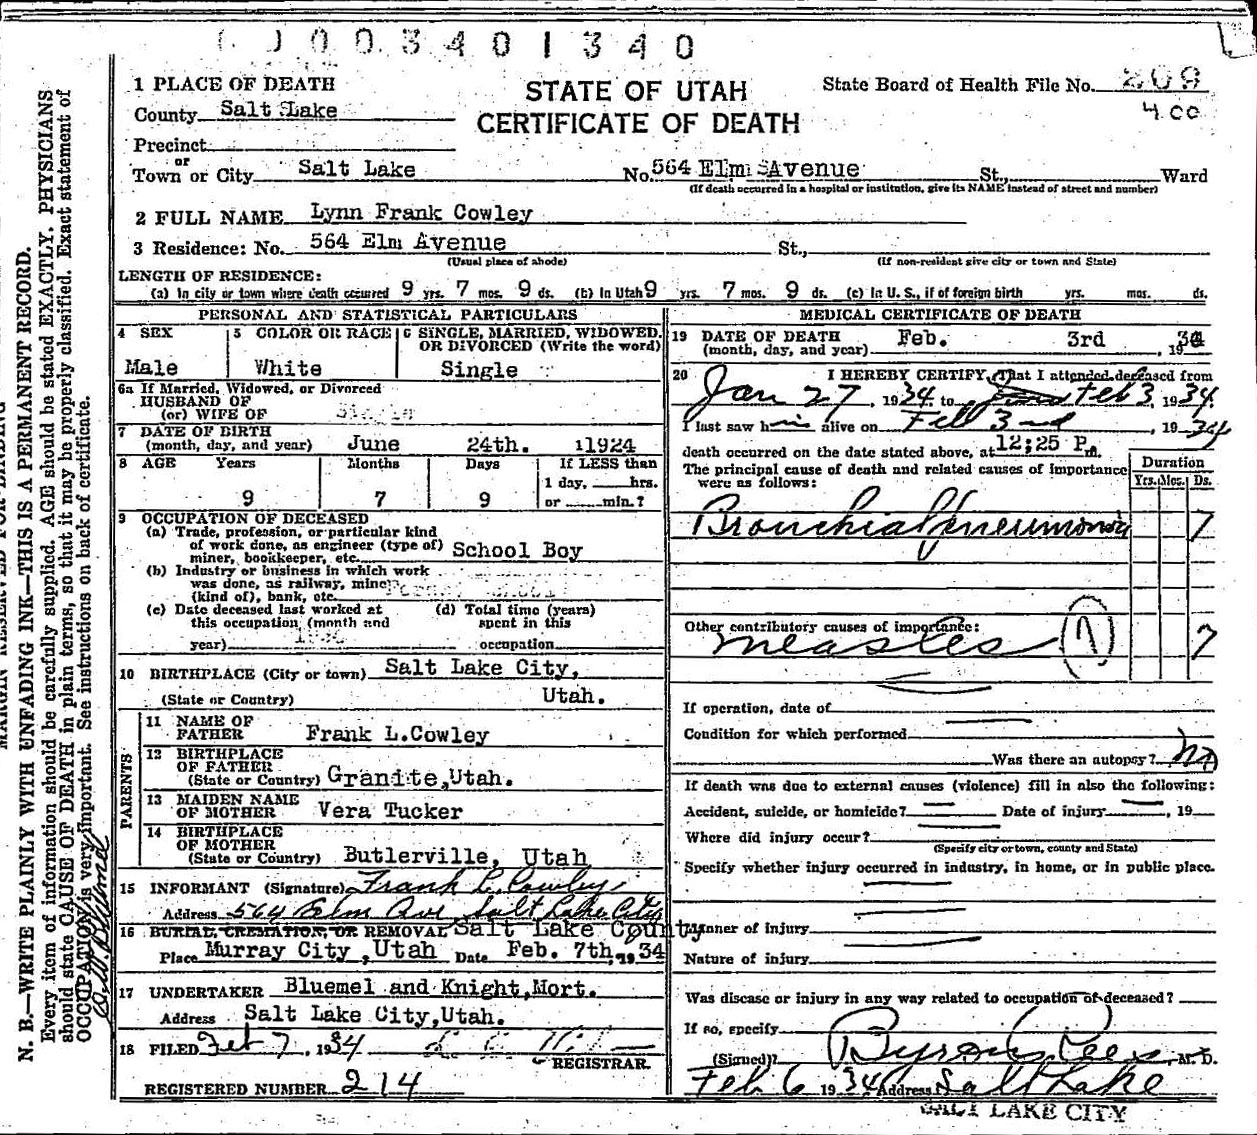 0003401340
1 PLACE OF DEATH
STATE OF UTAH
State Board of Health File No. 209
County Salt Lake
CERTIFICATE OF DEATH
400
Precinct
or
Town or City Salt Lake No. 564 Elm Avenue St., Ward
(If death occurred in a hospital or institution, give its NAME instead of street and number)
2 FULL NAME Lynn Frank Cowley
3 Residence: No. 564 Elm Avenue St.,
(Usual place of abode) (If non-resident give city or town and State)
LENGTH OF RESIDENCE:
(a) In city or town where death occurred 9 yrs. 7 mos. 9 ds. (b) In Utah 9 yrs. 7 mos. 9 ds. (c) In U. S., if of foreign birth yrs. mos. ds.
PERSONAL AND STATISTICAL PARTICULARS
4 SEX
Male
5 COLOR OR RACE
White
6 SINGLE, MARRIED, WIDOWED,
OR DIVORCED (Write the word)
Single
6a If Married, Widowed, or Divorced
HUSBAND OF
(or) WIFE OF
7 DATE OF BIRTH
(month, day, and year) June 24th. 1924
8 AGE Years Months Days If LESS than
1 day, hrs.
9 7 9 or min.?
9 OCCUPATION OF DECEASED
(a) Trade, profession, or particular kind
of work done, as engineer (type of)
miner, bookkeeper, etc. School Boy
(b) Industry or business in which work
was done, as railway, mine
(kind of), bank, etc.
(c) Date deceased last worked at (d) Total time (years)
this occupation (month and spent in this
year) occupation
10 BIRTHPLACE (City or town) Salt Lake City,
(State or Country) Utah.
PARENTS
11 NAME OF
FATHER Frank L.Cowley
12 BIRTHPLACE
OF FATHER
(State or Country) Granite,Utah.
13 MAIDEN NAME
OF MOTHER Vera Tucker
14 BIRTHPLACE
OF MOTHER
(State or Country) Butlerville, Utah
15 INFORMANT (Signature) Frank L. Cowley
Address 564 Elm Ave Salt Lake City
16 BURIAL, CREMATION, OR REMOVAL Salt Lake County
Place Murray City ,Utah Date Feb. 7th, 1934
17 UNDERTAKER Bluemel and Knight,Mort.
Address Salt Lake City,Utah.
18 FILED Feb 7, 1934
REGISTRAR.
REGISTERED NUMBER 214
MEDICAL CERTIFICATE OF DEATH
19 DATE OF DEATH
(month, day, and year) Feb. 3rd , 1934
20 I HEREBY CERTIFY, That I attended deceased from
Jan 27, 1934 to Feb 3, 1934.
I last saw him alive on Feb 3rd, 1934
death occurred on the date stated above, at 12;25 P.m.
The principal cause of death and related causes of importance
were as follows:
Duration
Yrs. Mos. Ds.
Bronchial Pneumonia 7
Other contributory causes of importance:
measles 7
If operation, date of
Condition for which performed
Was there an autopsy? No
If death was due to external causes (violence) fill in also the following:
Accident, suicide, or homicide? Date of injury , 19
Where did injury occur?
(Specify city or town, county and State)
Specify whether injury occurred in industry, in home, or in public place.
Manner of injury
Nature of injury
Was disease or injury in any way related to occupation of deceased?
If so, specify
(Signed) Byron Rees, M. D.
Feb 6 1934 Address Salt Lake
SALT LAKE CITY
N. B.—WRITE PLAINLY WITH UNFADING INK—THIS IS A PERMANENT RECORD.
Every item of information should be carefully supplied. AGE should be stated EXACTLY. PHYSICIANS
should state CAUSE OF DEATH in plain terms, so that it may be properly classified. Exact statement of
OCCUPATION is very important. See instructions on back of certificate.